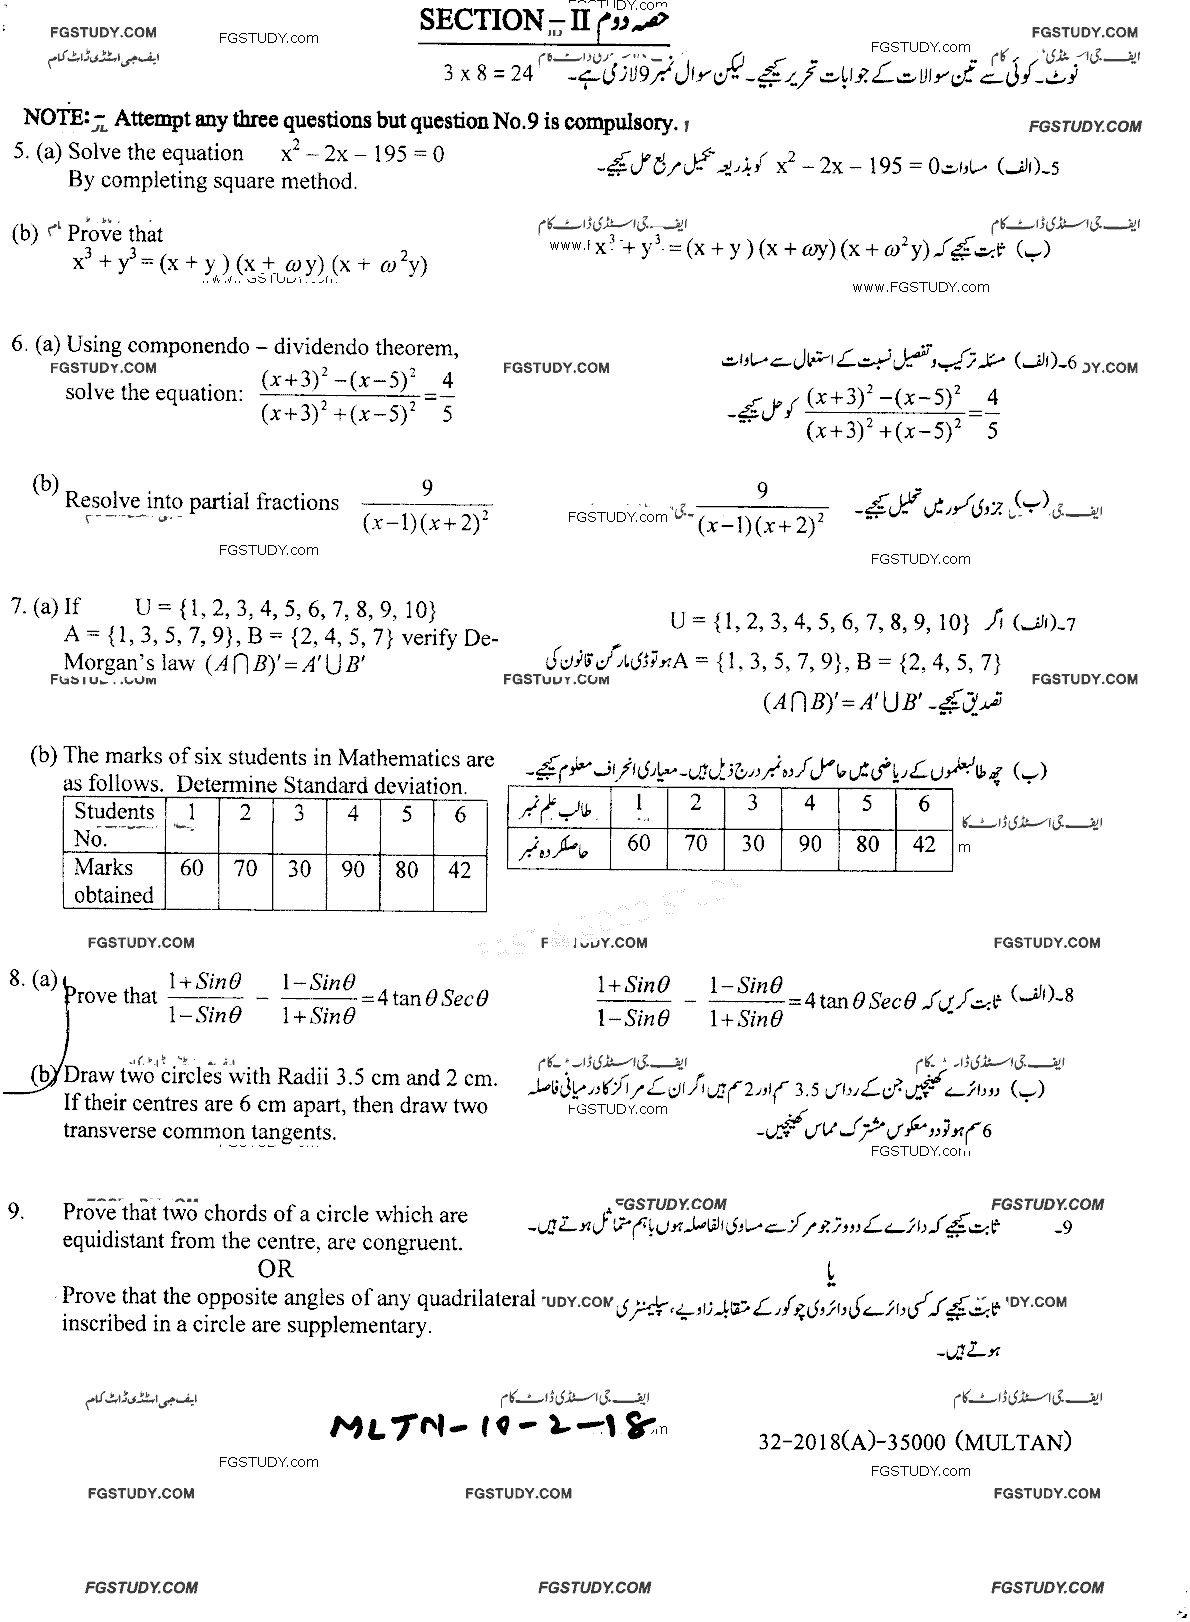 FGSTUDY.COM FGSTUDY.com SECTION – II حصہ دوم FGSTUDY.com FGSTUDY.COM
ایف جی اسٹڈی ڈاٹ کام
نوٹ۔ کوئی سے تین سوالات کے جوابات تحریر کیجیے۔ لیکن سوال نمبر 9 لازمی ہے۔ 3 x 8 = 24
NOTE:- Attempt any three questions but question No.9 is compulsory.
FGSTUDY.COM
5. (a) Solve the equation x² – 2x – 195 = 0
By completing square method.
5۔(الف) مساوات x² – 2x – 195 = 0 کو بذریعہ تکمیل مربع حل کیجیے۔
ایف جی اسٹڈی ڈاٹ کام ایف جی اسٹڈی ڈاٹ کام
(b) Prove that
x³ + y³ = (x + y ) (x + ωy) (x + ω²y)
(ب) ثابت کیجیے کہ x³ + y³ = (x + y ) (x + ωy) (x + ω²y)
www.FGSTUDY.com
6. (a) Using componendo – dividendo theorem,
FGSTUDY.COM FGSTUDY.COM
solve the equation: ((x+3)² –(x–5)²)/((x+3)² +(x–5)²) = 4/5
6۔(الف) مسئلہ ترکیب و تفصیل نسبت کے استعمال سے مساوات
((x+3)² –(x–5)²)/((x+3)² +(x–5)²) = 4/5 کو حل کیجیے۔
(b) Resolve into partial fractions 9/((x–1)(x+2)²)
(ب) جزوی کسور میں تحلیل کیجیے۔ 9/((x–1)(x+2)²)
FGSTUDY.com
FGSTUDY.com FGSTUDY.com
7. (a) If U = {1, 2, 3, 4, 5, 6, 7, 8, 9, 10}
A = {1, 3, 5, 7, 9}, B = {2, 4, 5, 7} verify De-
Morgan's law (A⋂B)′= A′⋃B′
7۔(الف) اگر U = {1, 2, 3, 4, 5, 6, 7, 8, 9, 10}
A = {1, 3, 5, 7, 9}, B = {2, 4, 5, 7} ہو تو ڈی مارگن قانون کی
تصدیق کیجیے۔ (A⋂B)′= A′⋃B′
FGSTUDY.COM FGSTUDY.COM FGSTUDY.COM
(b) The marks of six students in Mathematics are
as follows. Determine Standard deviation.
Students No. 1 2 3 4 5 6
Marks obtained 60 70 30 90 80 42
(ب) چھ طالبعلموں کے ریاضی میں حاصل کردہ نمبر درج ذیل ہیں۔ معیاری انحراف معلوم کیجیے۔
طالب علم نمبر 1 2 3 4 5 6
حاصل کردہ نمبر 60 70 30 90 80 42
FGSTUDY.COM FGSTUDY.COM FGSTUDY.COM
8. (a) Prove that (1+Sinθ)/(1–Sinθ) – (1–Sinθ)/(1+Sinθ) = 4 tanθ Secθ
8۔(الف) ثابت کریں کہ (1+Sinθ)/(1–Sinθ) – (1–Sinθ)/(1+Sinθ) = 4 tanθ Secθ
ایف جی اسٹڈی ڈاٹ کام ایف جی اسٹڈی ڈاٹ کام
(b) Draw two circles with Radii 3.5 cm and 2 cm.
If their centres are 6 cm apart, then draw two
transverse common tangents.
(ب) دو دائرے کھینچیں جن کے رداس 3.5 سم اور 2 سم ہیں اگر ان کے مراکز کا درمیانی فاصلہ
6 سم ہو تو دو معکوس مشترک مماس کھینچیں۔
FGSTUDY.com
FGSTUDY.com
FGSTUDY.COM FGSTUDY.COM
9. Prove that two chords of a circle which are
equidistant from the centre, are congruent.
OR
Prove that the opposite angles of any quadrilateral
inscribed in a circle are supplementary.
9۔ ثابت کیجیے کہ دائرے کے دو وتر جو مرکز سے مساوی الفاصلہ ہوں باہم متماثل ہوتے ہیں۔
یا
ثابت کیجیے کہ کسی دائرے کی دائروی چوکور کے متقابلہ زاویے، سپلیمنٹری
ہوتے ہیں۔
ایف جی اسٹڈی ڈاٹ کام ایف جی اسٹڈی ڈاٹ کام ایف جی اسٹڈی ڈاٹ کام
MLTN-10-2-18
32-2018(A)-35000 (MULTAN)
FGSTUDY.com FGSTUDY.com
FGSTUDY.COM FGSTUDY.COM FGSTUDY.COM
FGSTUDY.COM FGSTUDY.COM FGSTUDY.COM